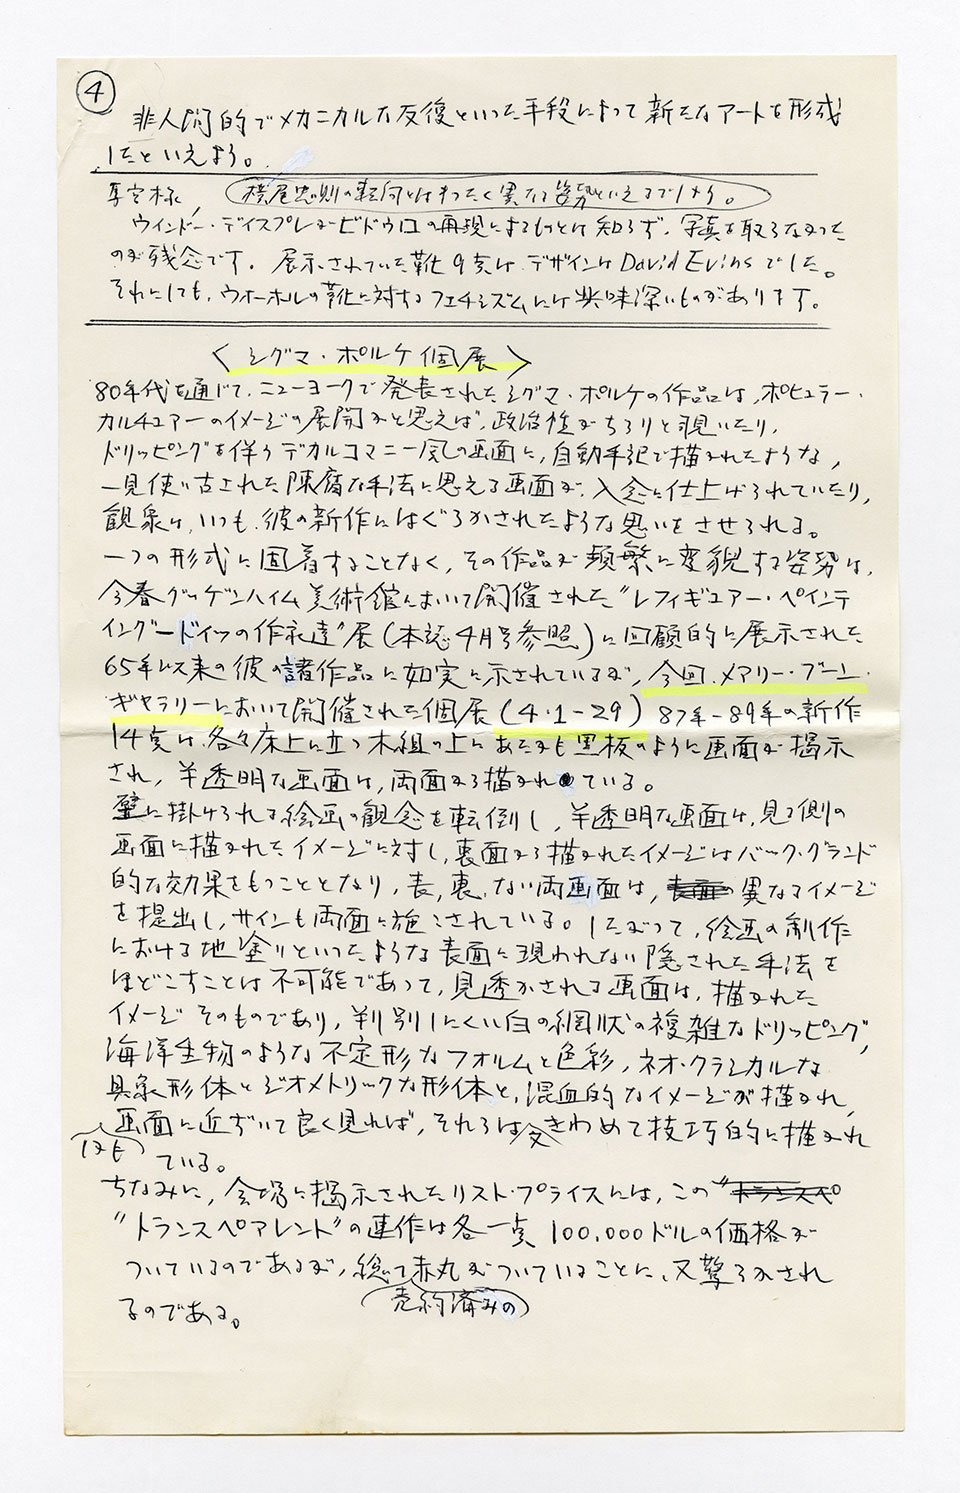 ④
非人間的でメカニカルな反復といった手段によって新たなアートを形成
したといえよう。
横尾忠則の転向とはまったく異なる姿勢といえるでしょう。
ウインドー・ディスプレイがビドウロの再現によるものとは知らず、写真を取らなかった
のが残念です。展示されていた靴9点は、デザインはDavid Evinsでした。
それにしても、ウォーホルの靴に対するフェチシズムには興味深いものがあります。
〈シグマ・ポルケ個展〉
80年代を通じて、ニューヨークで発表されたシグマ・ポルケの作品は、ポピュラー・
カルチュアーのイメージの展開かと思えば、政治性がちらりと覗いたり、
ドリッピングを伴うデカルコマニー風の画面に、自動手記で描かれたような、
一見使い古された陳腐な手法に思える画面が、入念に仕上げられていたり、
観衆は、いつも、彼の新作にはぐらかされたような思いをさせられる。
一つの形式に固着することなく、その作品が頻繁に変貌する姿勢は、
今春グッゲンハイム美術館において開催された“レフィギュアー・ペインテ
イングードイツの作家達”展(本誌4月号参照)に回顧的に展示された
65年以来の彼の諸作品に如実に示されているが、今回、メアリー・ブーン・
ギャラリーにおいて開催された個展(4・1-29) 87年-89年の新作
14点は、各々床上に立つ木組の上にあたかも黒板のように画面が掲示
され、半透明な画面は、両面から描かれている。
壁に掛けられる絵画の観念を転倒し、半透明な画面は、見る側の
画面に描かれたイメージに対し、裏面から描かれたイメージはバック・グランド
的な効果をもつこととなり、表、裏、ない両画面は、表面の異なるイメージ
を提出し、サインも両面に施こされている。したがって、絵画の制作
における地塗りといったような表面に現われない隠された手法を
ほどこすことは不可能であって、見透かされる画面は、描かれた
イメージそのものであり、判別しにくい白の網状の複雑なドリッピング、
海洋生物のような不定形なフォルムと色彩、ネオ・クラシカルな
具象形体とジオメトリックな形体と、混血的なイメージが描かれ、
画面に近ずいて良く見れば、それらは又きわめて技巧的に描かれ
ている。
ちなみに、会場に掲示されたリスト・プライスには、この“トランスペ
“トランスペアレント”の連作は各一点100,000ドルの価格が
ついているのであるが、総て赤丸がついていることに、又驚ろかされ
売約済みの
るのである。